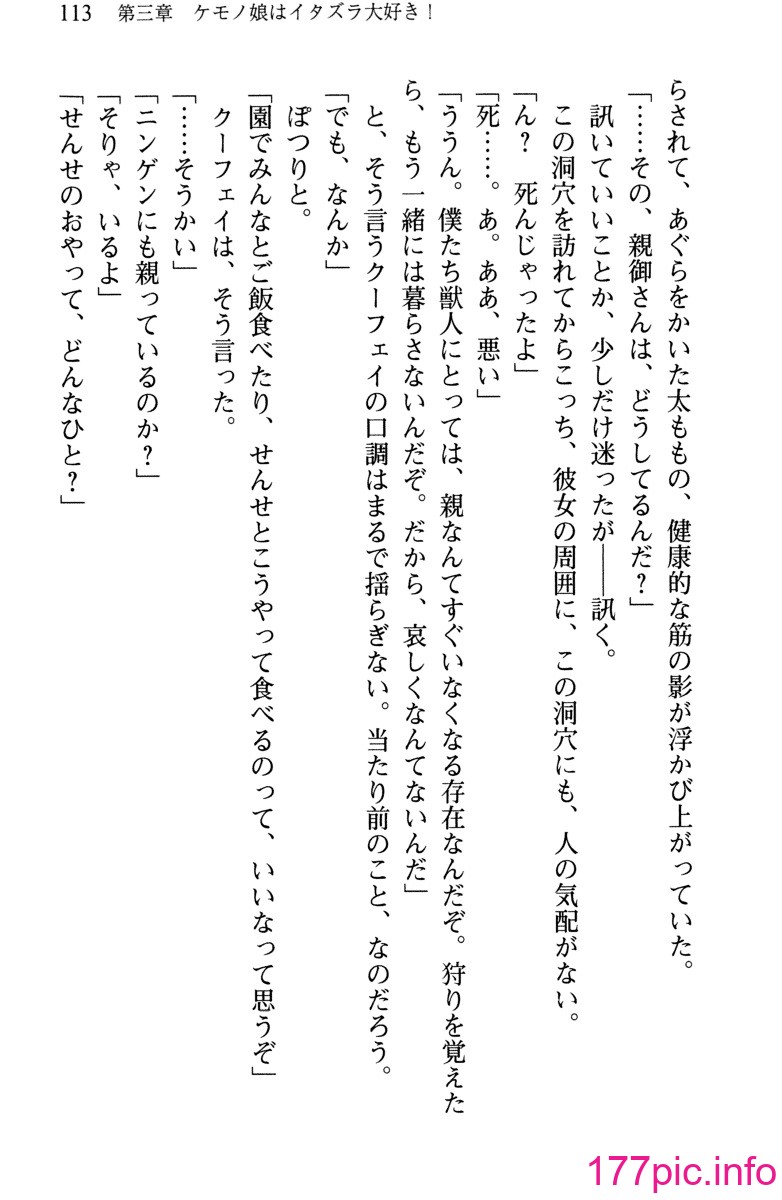 113　第三章　ケモノ娘はイタズラ大好き！
らされて、あぐらをかいた太ももの、健康的な筋の影が浮かび上がっていた。
「……その、親御さんは、どうしてるんだ？」
訊いていいことか、少しだけ迷ったが――訊く。
この洞穴を訪れてからこっち、彼女の周囲に、この洞穴にも、人の気配がない。
「ん？　死んじゃったよ」
「死……。あ。ああ、悪い」
「ううん。僕たち獣人にとっては、親なんてすぐいなくなる存在なんだぞ。狩りを覚えた
ら、もう一緒には暮らさないんだぞ。だから、哀しくなんてないんだ」
と、そう言うクーフェイの口調はまるで揺らぎない。当たり前のこと、なのだろう。
「でも、なんか」
ぽつりと。
「園でみんなとご飯食べたり、せんせとこうやって食べるのって、いいなって思うぞ」
クーフェイは、そう言った。
「……そうかい」
「ニンゲンにも親っているのか？」
「そりゃ、いるよ」
「せんせのおやって、どんなひと？」
177pic.info